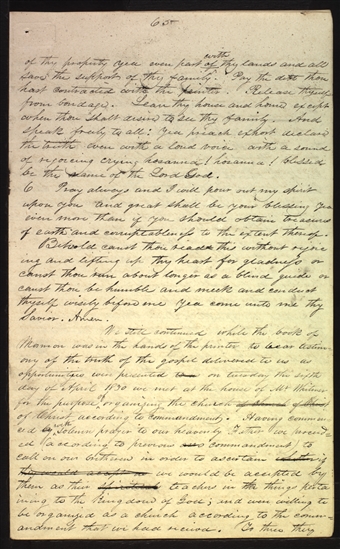 65
of thy property yea even part with of thy lands and all
save the support of thy family. Pay the debt thou
hast contracted with the printer. Release thyself
from bondage. Leave thy house and home except
when thou shalt desire to see thy family. And
speak freely to all: Yea preach exhort declare
the truth even with a loud voice with a sound
of rejoicing crying hosanna! hosanna! blessed
be the name of the Lord God.
6 Pray always and I will pour out my spirit
upon you and great shall be your blessing Yea
even more than if you should obtain treasures
of earth and corruptableness to the extent thereof.
Behold canst thou read this without rejoic
ing and lifting up thy heart for gladness or
canst thou run about longer as a blind guide or
canst thou be humble and meek and conduct
thyself wisely before me Yea come unto me thy
Savior. Amen.
We still continued while the book of
Mormon was in the hands of the printer to bear testim
ony of the truth of the gospel delivered to us as
opportunities were presented on tuesday the sixth
day of April 1830 we met at the house of Mr Whitmer
for the purpose of organizing the church
of Christ according to commandment. Having commen
ced by solemn prayer to our heavenly Father we proceed
ed (according to previous commandment) to
call on our brethren in order to ascertain
we would be accepted by
them as their teachers in the things perta
ining to the Kingdom of God; and were willing to
be organized as a church according to the comm
andment that we had received. To these they